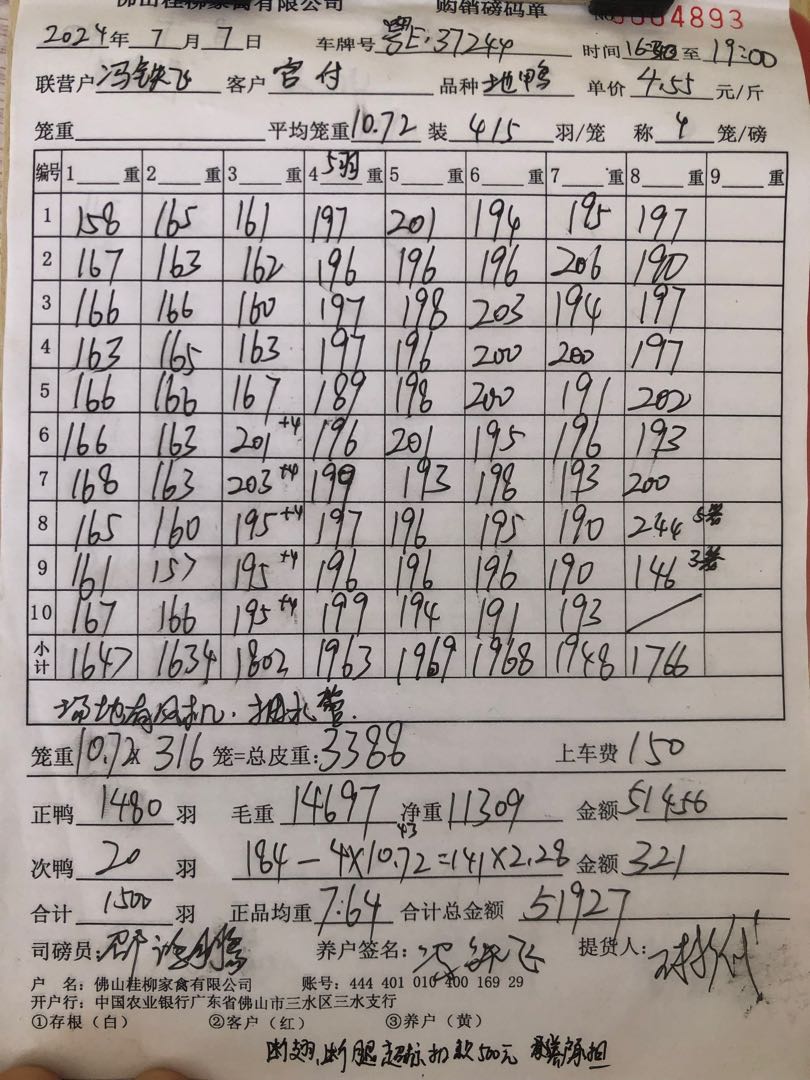 佛山桂柳家禽有限公司 购销磅码单 No 0004893
2024年 7月 7日 车牌号 粤E·37244 时间 16:30 至 19:00
联营户 冯铁飞 客户 官付 品种 地鸭 单价 4.55 元/斤
笼重 平均笼重 10.72 装 4/5 羽/笼 称 4 笼/磅
编号 1 重 2 重 3 重 4 5羽 重 5 重 6 重 7 重 8 重 9 重
1 158 165 161 197 201 194 195 197
2 167 163 162 196 196 196 206 190
3 166 166 160 197 198 203 194 197
4 163 165 163 197 196 200 200 197
5 166 166 167 189 198 200 191 202
6 166 163 201+4 196 201 195 196 193
7 168 163 203+4 199 193 198 193 200
8 165 160 195+4 197 196 195 190 244 5笼
9 161 157 195+4 196 196 196 190 146 3笼
10 167 166 195+4 199 194 191 193 /
小计 1647 1634 1802 1963 1969 1968 1948 1766
场地有风机、
笼重 10.72 × 316 笼=总皮重: 3388 上车费 150
正鸭 1480 羽 毛重 14697 净重 11309 金额 51456
43
次鸭 20 羽 184-4×10.72=141×2.28 金额 321
合计 1500 羽 正品均重 7.64 合计总金额 51927
司磅员: 养户签名: 冯铁飞 提货人:
户 名: 佛山桂柳家禽有限公司 账号: 444 401 010 400 169 29
开户行: 中国农业银行广东省佛山市三水区三水支行
①存根（白） ②客户（红） ③养户（黄）
断翅、断腿超标扣款500元